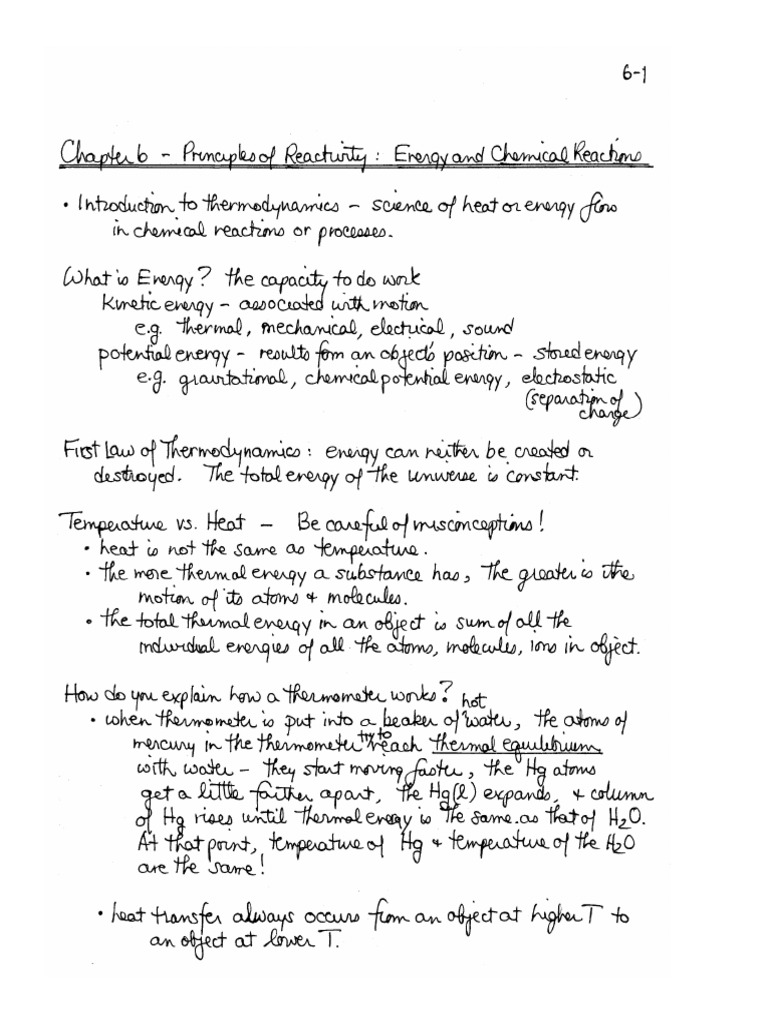 6-1
Chapter 6 - Principles of Reactivity : Energy and Chemical Reactions
• Introduction to thermodynamics - science of heat or energy flow
in chemical reactions or processes.
What is Energy? the capacity to do work
Kinetic energy - associated with motion
e.g. thermal, mechanical, electrical, sound
potential energy - results from an object's position - stored energy
e.g. gravitational, chemical potential energy, electrostatic
(separation of
charge)
First Law of Thermodynamics : energy can neither be created or
destroyed. The total energy of the universe is constant.
Temperature vs. Heat - Be careful of misconceptions!
• heat is not the same as temperature.
• the more thermal energy a substance has, the greater is the
motion of its atoms & molecules.
• the total thermal energy in an object is sum of all the
individual energies of all the atoms, molecules, ions in object.
How do you explain how a thermometer works?
• when thermometer is put into a beaker of hot water, the atoms of
mercury in the thermometer try to reach thermal equilibrium
with water - they start moving faster, the Hg atoms
get a little farther apart, the Hg(l) expands, & column
of Hg rises until thermal energy is the same as that of H2O.
At that point, temperature of Hg & temperature of the H2O
are the same!
• heat transfer always occurs from an object at higher T to
an object at lower T.